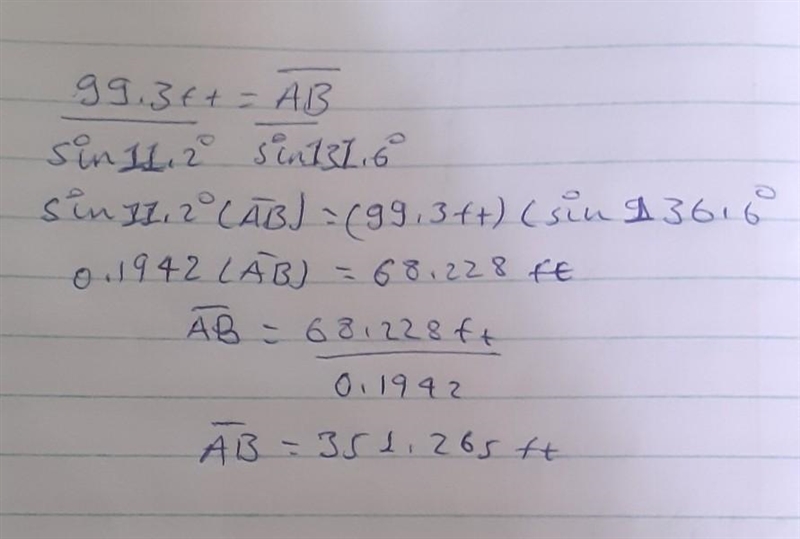 99.3ft = A̅B̅
sin11.2° sin131.6°
sin11.2° (A̅B̅) = (99.3ft) (sin 136.6°
0.1942 (A̅B̅) = 68.228 ft
A̅B̅ = 68.228ft
0.1942
A̅B̅ = 351.265 ft